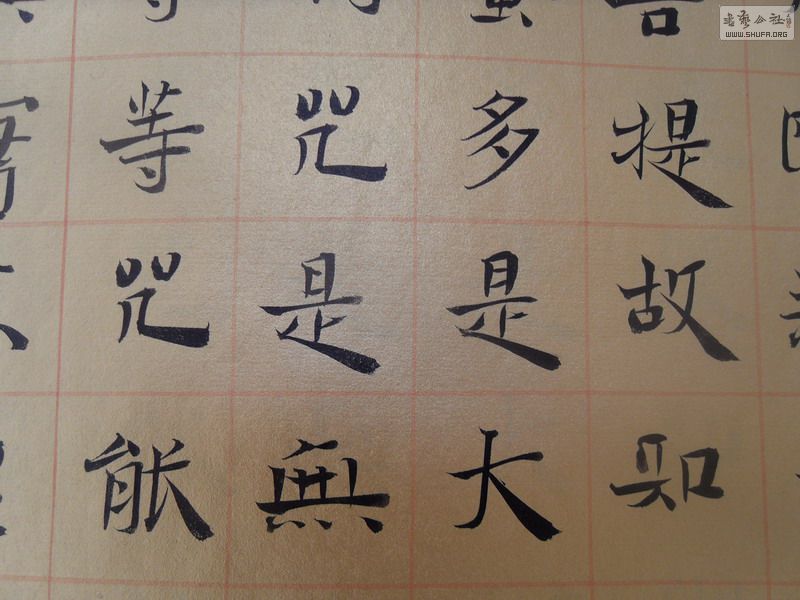 提故知
多是大
咒是無
等咒能
書藝公社
WWW.SHUFA.ORG